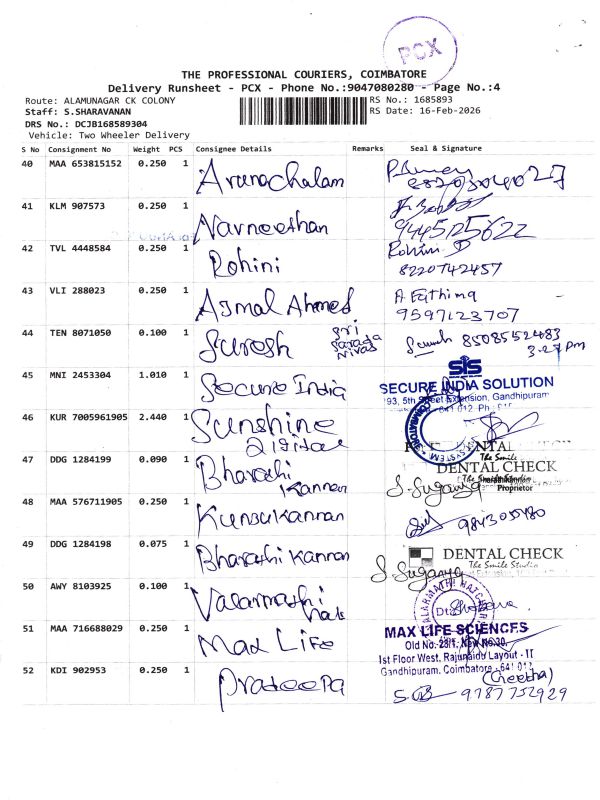 PCX
THE PROFESSIONAL COURIERS, COIMBATORE
Delivery Runsheet - PCX - Phone No.:9047080280 - Page No.:4
Route: ALAMUNAGAR CK COLONY
RS No.: 1685893
Staff: S.SHARAVANAN
RS Date: 16-Feb-2026
DRS No.: DCJB168589304
Vehicle: Two Wheeler Delivery
S No Consignment No Weight PCS Consignee Details Remarks Seal & Signature
40 MAA 653815152 0.250 1 Arunachalam
41 KLM 907573 0.250 1 Navneethan 9445125622
42 TVL 4448584 0.250 1 Rohini Rohini D
8220742457
43 VLI 288023 0.250 1 Ajmal Ahmed A Fathima
9597123707
44 TEN 8071050 0.100 1 Suresh Sri Sarada Nivas 8508552483
3.27 pm
45 MNI 2453304 1.010 1 Secure India
SIS
SECURE INDIA SOLUTION
193, 5th Street Extension, Gandhipuram
641 012
46 KUR 7005961905 2.440 1 Sunshine
DENTAL CHECK
The Smile
47 DDG 1284199 0.090 1 Bharathi Kannan
DENTAL CHECK
S. Suganya
Proprietor
48 MAA 576711905 0.250 1
49 DDG 1284198 0.075 1 Bharathi Kannan
DENTAL CHECK
The Smile Studio
S. Suganya
50 AWY 8103925 0.100 1 Valarmathi
51 MAA 716688029 0.250 1 Max Life
MAX LIFE SCIENCES
Old No. 28/1, New No.30,
1st Floor West, Rajunaidu Layout - II
Gandhipuram, Coimbatore - 641 012
52 KDI 902953 0.250 1 Pradeepa
9787752929